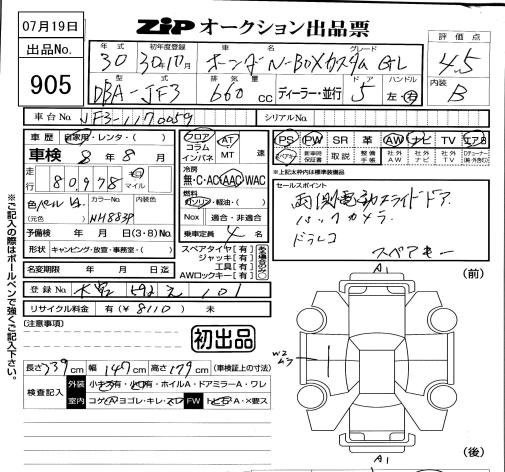 07月19日
出品No.
905
ZIP オークション出品票
評価点
4.5
内装
B
年式 初年度登録 車名 グレード
30 30年10月 ホンダ N-BOXカスタム GL
型式 排気量 ドア ハンドル
DBA-JF3 660 cc ディーラー・並行 5 左・右
車台No. JF3-1170059 シリアルNo.
車歴 自家用・レンタ・( )
車検 8年8月
走行 80,978 km マイル
色 パール カラーNo. 内装色
(元色) NH883P
予備検 年 月 日(3・8)No.
形状 キャンピング・放壹・事務室・( )
名変期限 年 月 日迄
フロア コラム インパネ
AT MT 速
冷房
無・C・AC・AAC・WAC
燃料
ガソリン・軽油・( )
Nox 適合・非適合
乗車定員 4 名
スペアタイヤ[有]
ジャッキ[有]
工具[有]
AWロックキー[有]
PS PW SR 革 AW ナビ TV エアB
スペアキー 取説 整備手帳 社外AW 社外ナビ 社外TV
※上記太枠内は標準装備品
セールスポイント
両側電動スライドドア
バックカメラ
ドラレコ
スペアキー
登録No. 101
リサイクル料金 有(¥8110) 未
(注意事項)
初出品
長さ339cm 幅147cm 高さ179cm (車検証上の寸法)
検査記入
外装 小キズ有・小凹有・ホイルA・ドアミラーA・ワレ
室内 コゲ穴A・ヨゴレ・キレ・スレ FW トビ石A・X要ス
※ご記入の際はボールペンで強くご記入下さい。
A1 (前)
W2
ムラ
A1 (後)